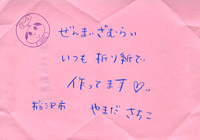 ぜんまいざむらい
いつも折り紙で
作ってます♡。
市 やまだ さちこ